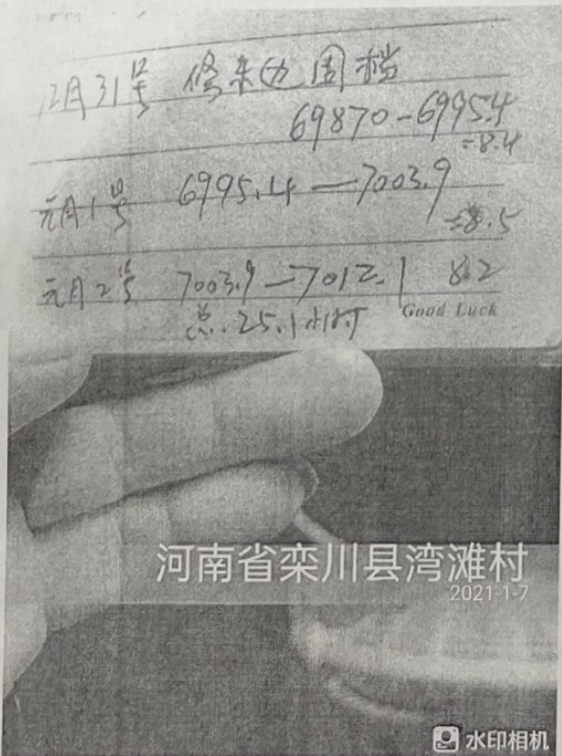 12月31号 修东边围档
69870-6995.4
=8.4
元月1号 6995.4—7003.9
=8.5
元月2号 7003.9—7012.1 8.2
总.25.1小时
Good Luck
河南省栾川县湾滩村
2021-1-7
水印相机